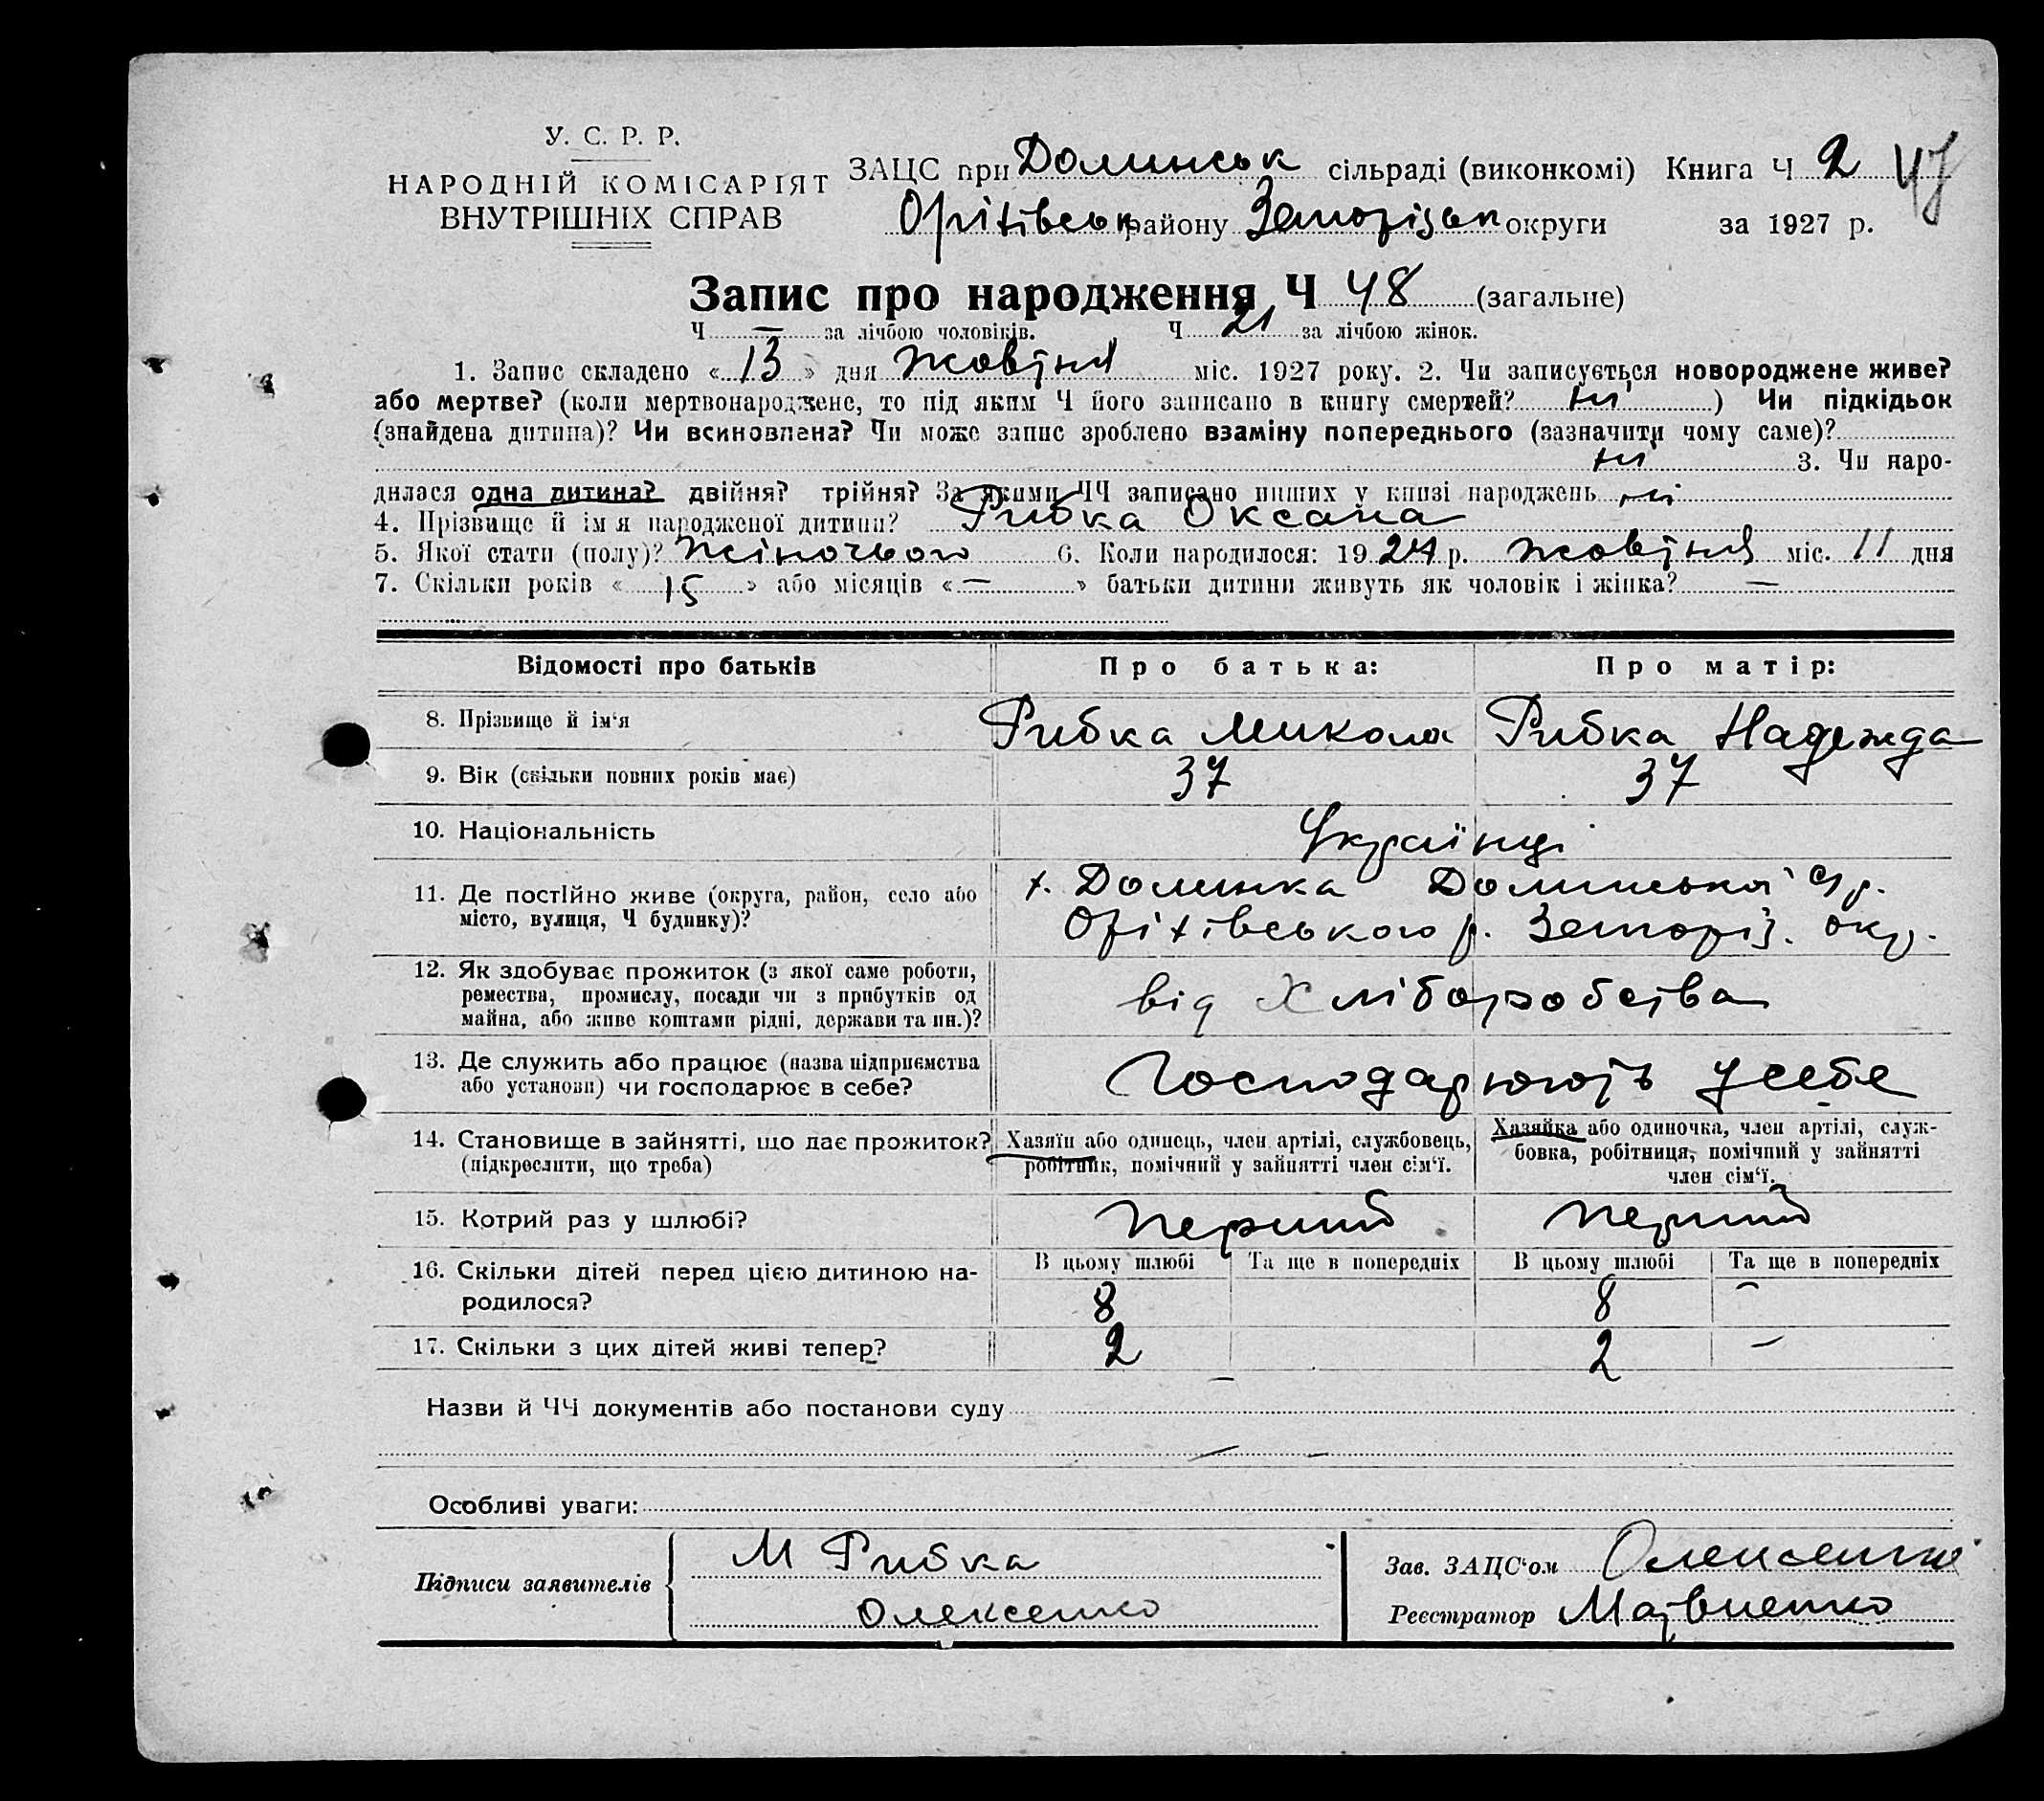 У. С. Р. Р.
НАРОДНІЙ КОМІСАРІЯТ
ВНУТРІШНІХ СПРАВ
ЗАЦС при Долинськ сільраді (виконкомі) Книга Ч 2 47
Оріхівськ району Запорізьк округи за 1927 р.
Запис про народження Ч 48 (загальне)
Ч — за лічбою чоловіків. Ч 21 за лічбою жінок.
1. Запис складено « 13 » дня жовтня міс. 1927 року. 2. Чи записується новороджене живе?
або мертве? (коли мертвонароджене, то під яким Ч його записано в книгу смертей? ні ) Чи підкідьок
(знайдена дитина)? Чи всиновлена? Чи може запис зроблено взаміну попереднього (зазначити чому саме)?
ні 3. Чи наро-
дилася одна дитина? двійня? трійня? За якими ЧЧ записано инших у книзі народжень ні
4. Прізвище й ім'я народженої дитини? Рибка Оксана
5. Якої стати (полу)? жіночього 6. Коли народилося: 1927 р. жовтня міс. 11 дня
7. Скільки років « 15 » або місяців « — » батьки дитини живуть як чоловік і жінка? —
Відомості про батьків Про батька: Про матір:
8. Прізвище й ім'я Рибка Микола Рибка Надежда
9. Вік (скільки повних років має) 37 37
10. Національність Українці
11. Де постійно живе (округа, район, село або
місто, вулиця, Ч будинку)?
х. Долинка Долинської с/р.
Оріхівського р. Запоріз. окр.
12. Як здобуває прожиток (з якої саме роботи,
ремества, промислу, посади чи з прибутків од
майна, або живе коштами рідні, держави та ин.)?
від Хліборобства
13. Де служить або працює (назва підприємства
або установи) чи господарює в себе?
Господарюють у себе
14. Становище в зайнятті, що дає прожиток?
(підкреслити, що треба)
Хазяїн або одинець, член артілі, службовець,
робітник, помічний у зайнятті член сім'ї.
Хазяйка або одиночка, член артілі, служ-
бовка, робітниця, помічний у зайнятті
член сім'ї.
15. Котрий раз у шлюбі? перший перший
16. Скільки дітей перед цією дитиною на-
родилося?
В цьому шлюбі Та ще в попередніх В цьому шлюбі Та ще в попередніх
8 8 —
17. Скільки з цих дітей живі тепер? 2 2 —
Назви й ЧЧ документів або постанови суду —
— —
Особливі уваги:
Підписи заявителів
М Рибка
Олексенко
Зав. ЗАЦС'ом Олексенко
Реєстратор Матвиенко